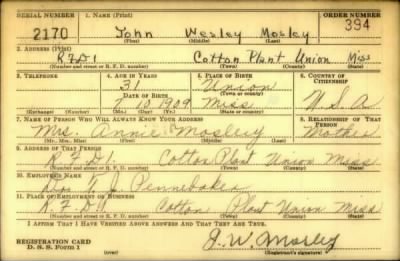 SERIAL NUMBER 1. NAME (Print) ORDER NUMBER
2170 John Wesley Mosley 394
(First) (Middle) (Last)
2. ADDRESS (Print)
R.F.D 1 Cotton Plant Union Miss
(Number and street or R. F. D. number) (Town) (County) (State)
3. TELEPHONE 4. AGE IN YEARS 5. PLACE OF BIRTH 6. COUNTRY OF CITIZENSHIP
31 Union
DATE OF BIRTH (Town or county)
10 1909 Miss U. S. A
(Exchange) (Number) (Mo.) (Day) (Yr.) (State or country)
7. NAME OF PERSON WHO WILL ALWAYS KNOW YOUR ADDRESS 8. RELATIONSHIP OF THAT PERSON
Mrs. Annie Mosley Mother
(Mr., Mrs., Miss) (First) (Middle) (Last)
9. ADDRESS OF THAT PERSON
R. F. D 1. Cotton Plant Union Miss
(Number and street or R. F. D. number) (Town) (County) (State)
10. EMPLOYER'S NAME
Pennebaker
11. PLACE OF EMPLOYMENT OR BUSINESS
R. F. D 1 Cotton Plant Union Miss
(Number and street or R. F. D. number) (Town) (County) (State)
I AFFIRM THAT I HAVE VERIFIED ABOVE ANSWERS AND THAT THEY ARE TRUE.
REGISTRATION CARD J. W. Mosley
D. S. S. FORM 1 (over) (Registrant's signature)